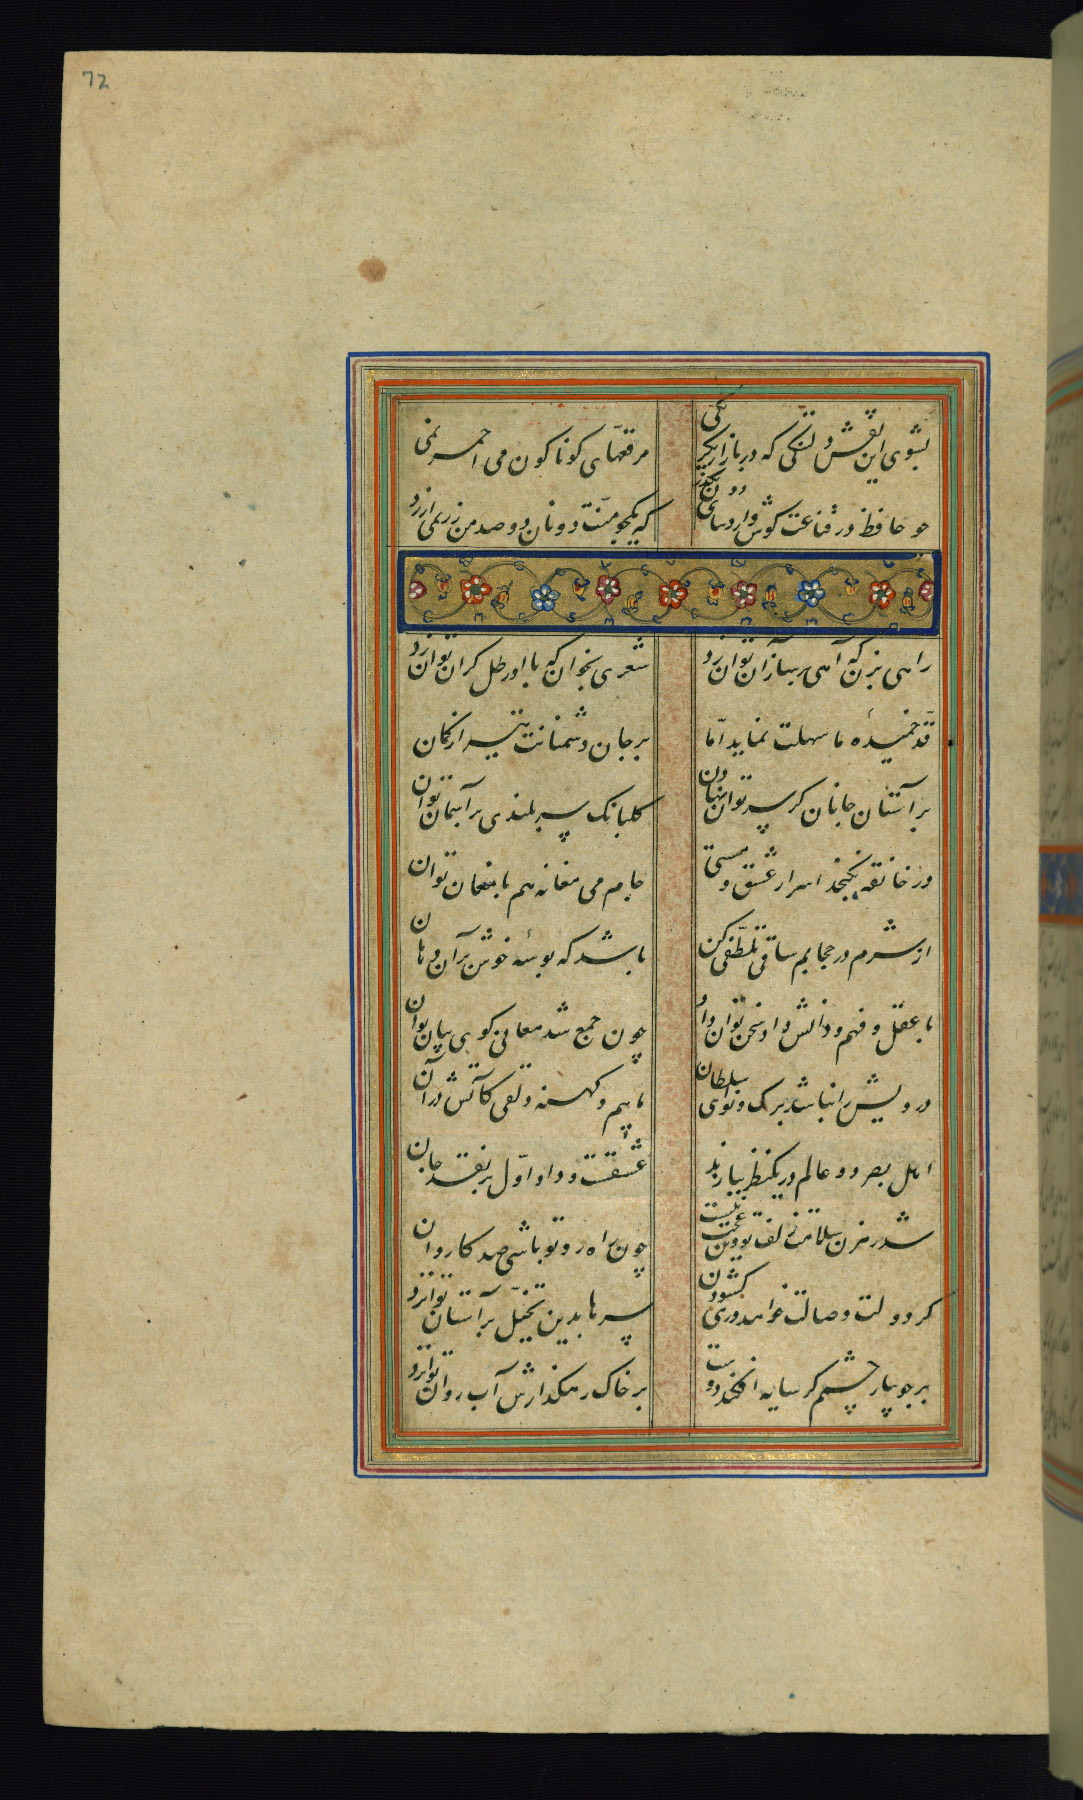 72
بشوی این نقش دلتنگی که در بازار یکرنگی
مرقعهای کوناکون می احمر نمی
چو حافظ در قناعت کوش و از دنیای دون بگذر
که یکجو منت دونان دو صد من زر نمی ارزد
راهی بزن که آهی بر ساز آن توان زد
شعری بخوان که با او رطل کران توان زد
قد خمیدهٔ ما سهلت نماید اما
بر جان دشمنانت تیر از کمان
بر آستان جانان کر سر توان نهادن
کلبانک سربلندی بر آسمان توان
در خانقه نکنجد اسرار عشق و مستی
جام می مغانه هم با مغان توان
از شرم در حجابم ساقی تلطفی کن
باشد که بوسهٔ خوش بر آن دهان
با عقل و فهم و دانش داد سخن توان داد
چون جمع شد معانی کوی بیان توان
درویش را نباشد برک و نوای سلطان
ماییم و کهنه دلقی کآتش در آن
اهل بصر دو عالم در یکنظر ببازند
عشقست و داو اول بر نقد جان
شد رهزن سلامت زلف تو وین عجب نیست
چون راه رو تو باشی صد کاروان
کر دولت وصالت خواهد دری کشودن
سرها بدین تخیل بر آستان توانزد
بر جویبار چشمم کر سایه افکند دوست
بر خاک رهکذارش آب روان توانزد